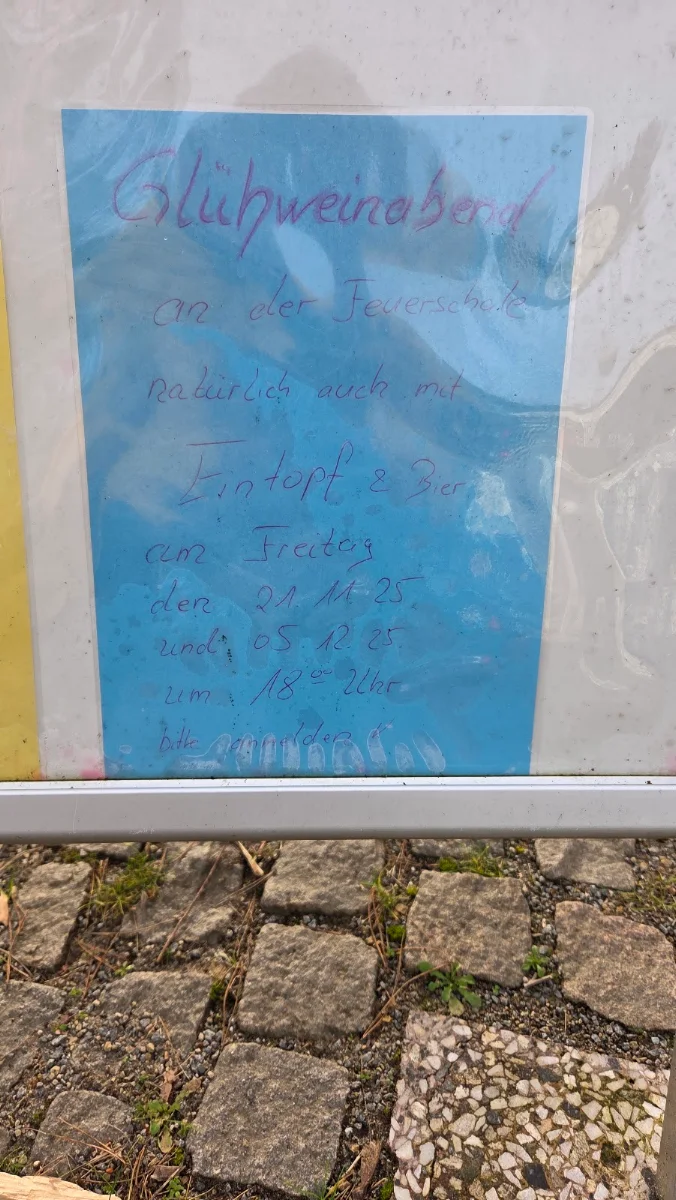 Glühweinabend
an der Feuerschale
natürlich auch mit
Eintopf & Bier
am Freitag
den 21. 11. 25
und 05. 12. 25.
um 18⁰⁰ Uhr
bitte anmelden!